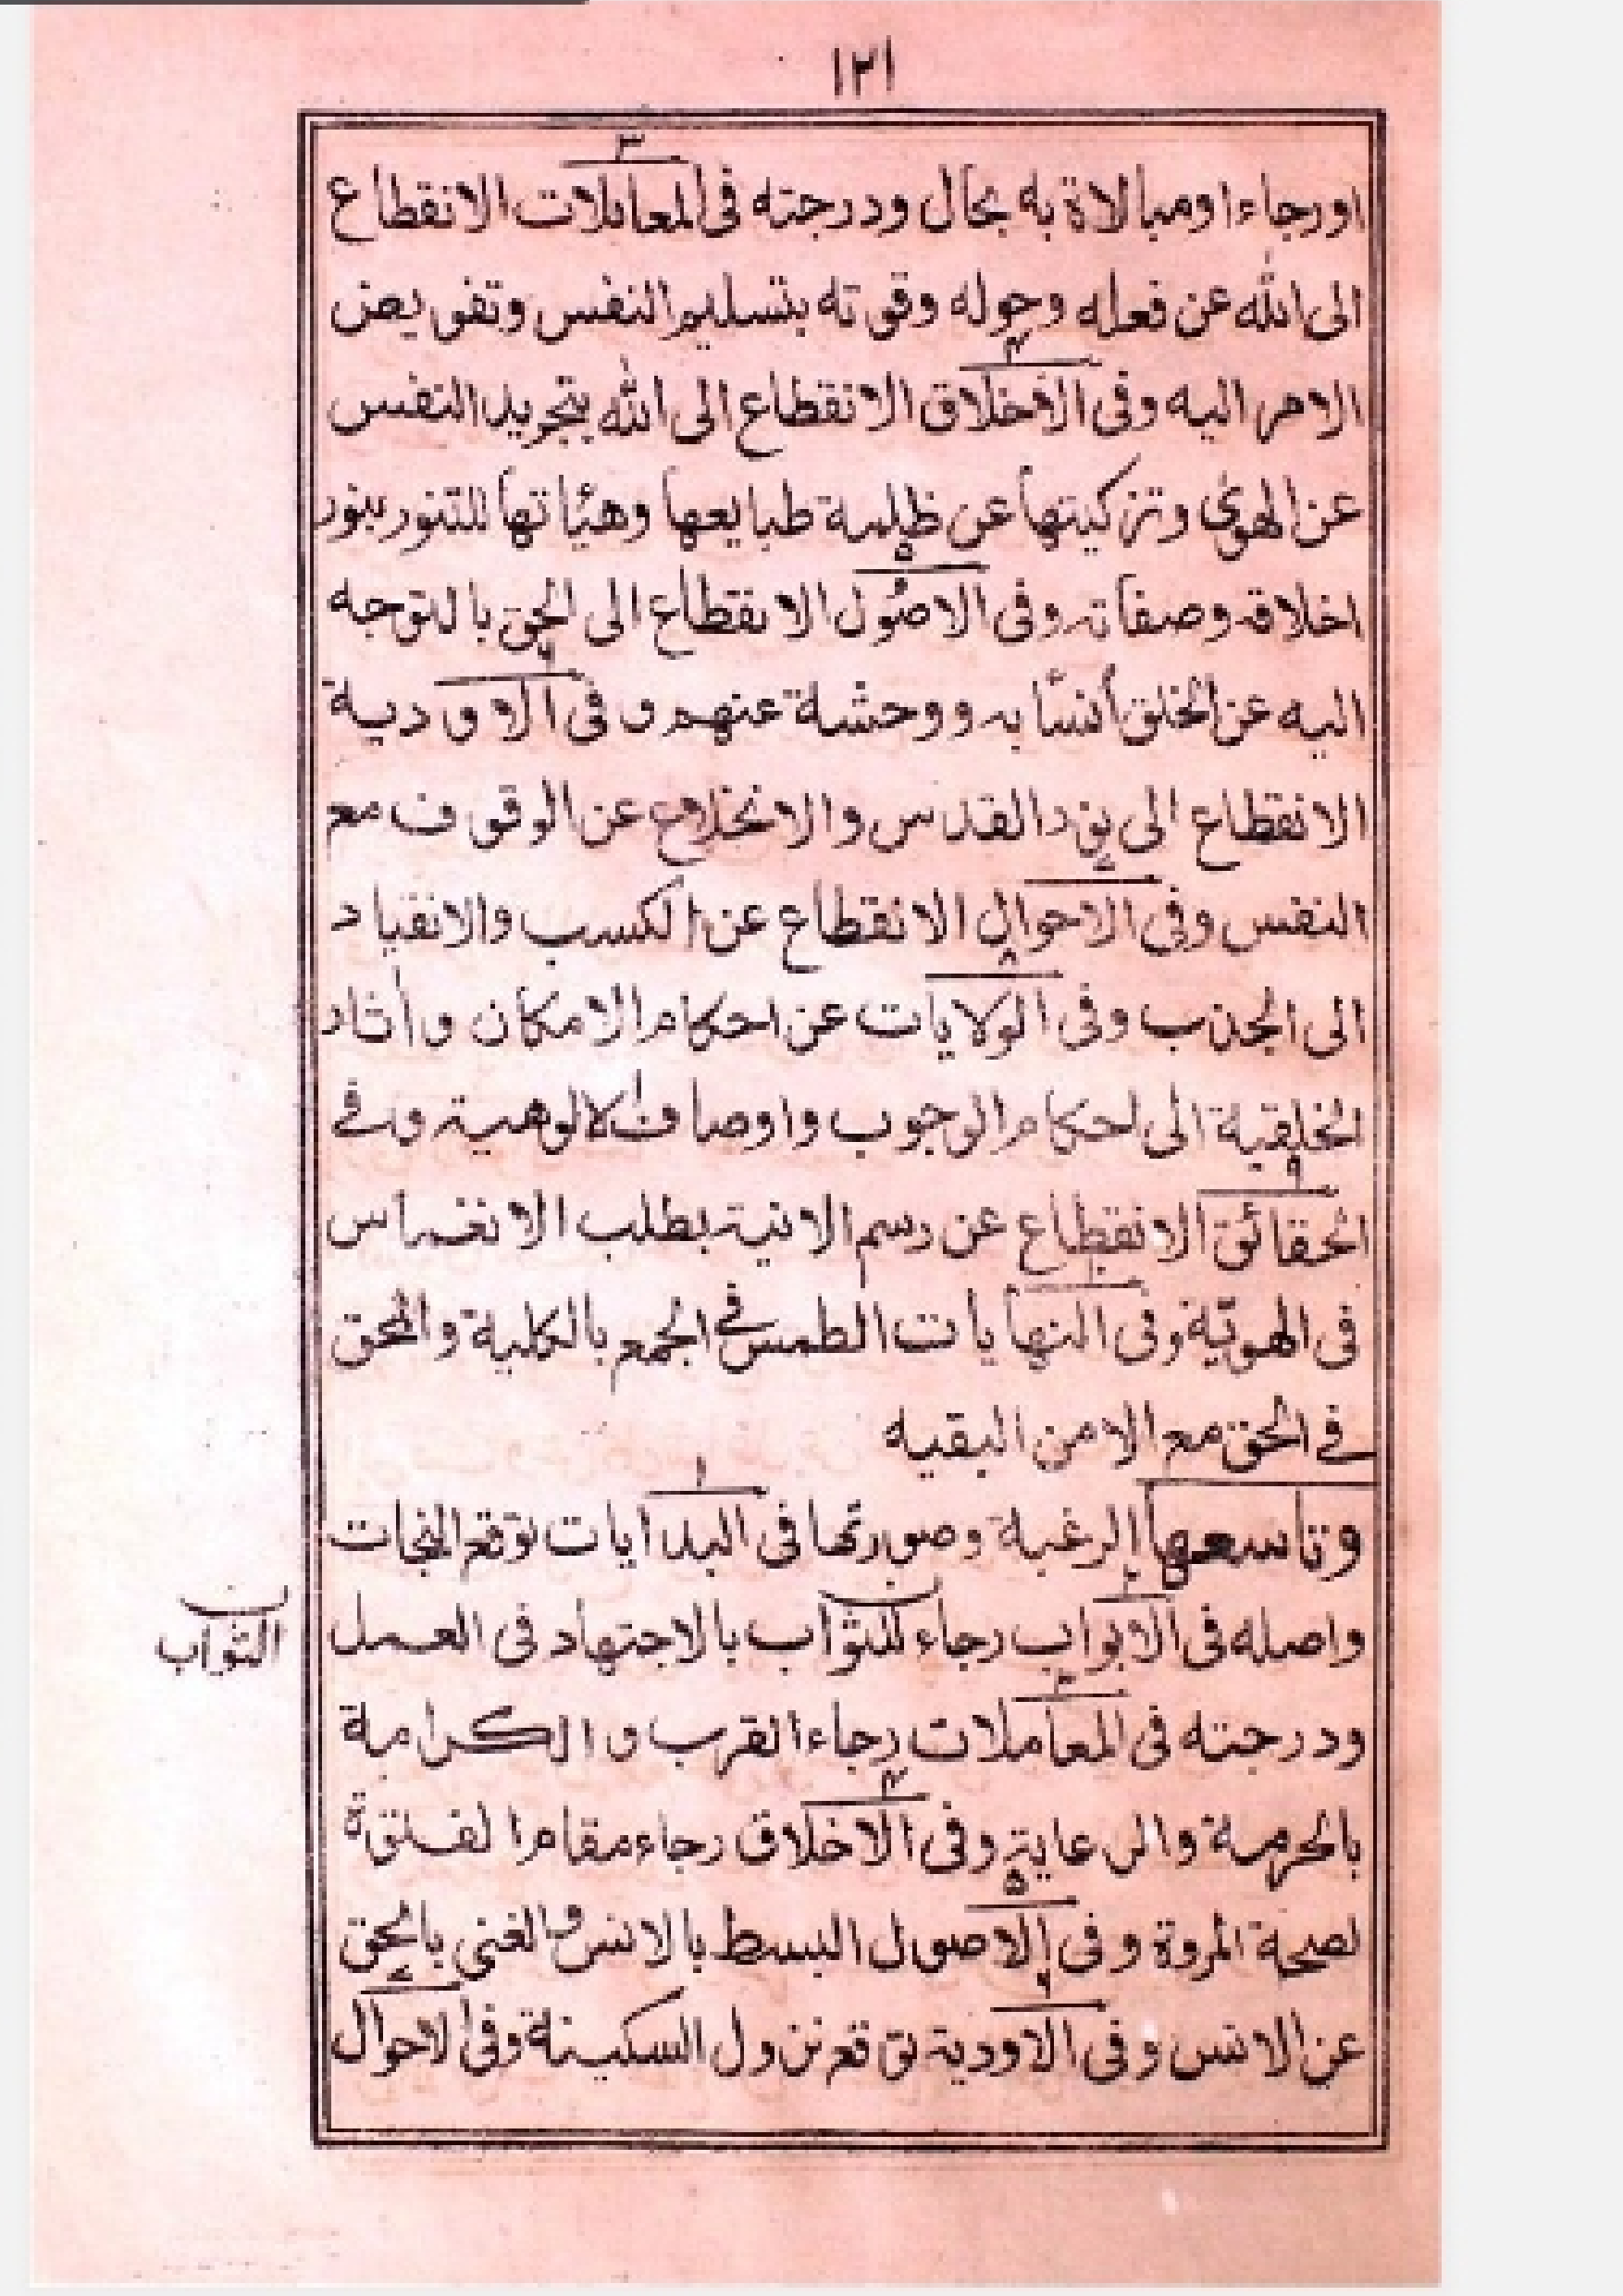 ١٢١
٣
اورجاء اومبالاة به بحال ودرجته فى المعاملات الانقطاع
الى الله عن فعله وحوله وقوته بتسليم النفس وتفويض
٤
الامر اليه وفى الاخلاق الانقطاع الى الله بتجريد النفس
عن الهوى وتزكيتها عن ظلمة طبايعها وهيئاتها للتنور بنور
٥
اخلاقه وصفاته وفى الاصول الانقطاع الى الحق بالتوجه
٦
اليه عن الخلق أنسًا به ووحشة عنهم و فى الاودية
الانقطاع الى نور القدس والانخلاع عن الوقوف مع
٧
النفس وفى الاحوال الانقطاع عن الكسب والانقياد
٨
الى الجذب وفى الولايات عن احكام الامكان وأثار
الخلقية الى احكام الوجوب واوصاف الالوهية وفى
٩
الحقائق الانقطاع عن رسم الانية بطلب الانغماس
١٠
فى الهويّة وفى النهايات الطمس فى الجمع بالكلية والمحق
فى الحق مع الامن البقيه
١
وتاسعها الرغبة وصورتها فى البدايات توقع النجات
٢
واصله فى الابواب رجاء للثواب بالاجتهاد فى العمل
الثواب
٣
ودرجته فى المعاملات رجاء القرب والكرامة
٤
بالحرمة والرعاية وفى الاخلاق رجاء مقام الفتوة
٥
لصحة المروة وفى الاصول البسط بالانس والغنى بالحق
٦ ٧
عن الانس وفى الاودية توقع نزول السكينة وفى الاحوال